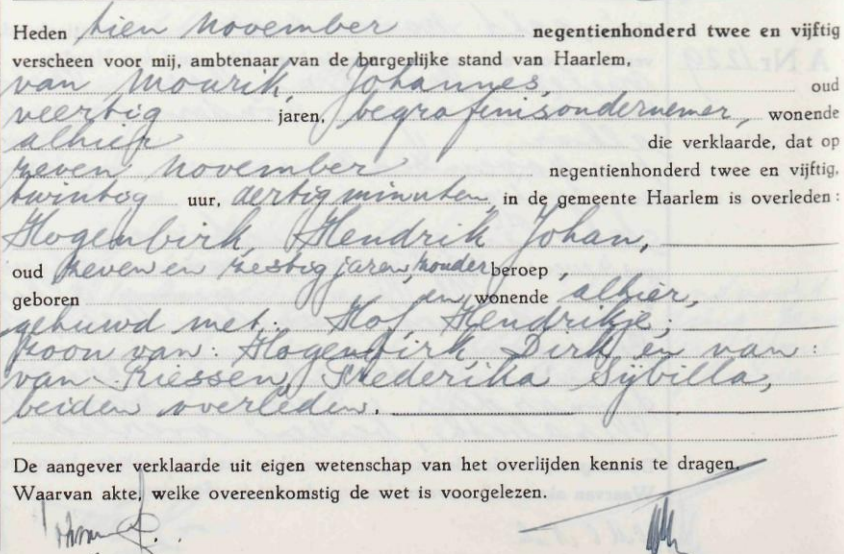 Heden tien november negentienhonderd twee en vijftig
verscheen voor mij, ambtenaar van de burgerlijke stand van Haarlem,
van Mourik, Johannes, oud
veertig jaren, begrafenisondernemer, wonende
alhier die verklaarde, dat op
zeven november negentienhonderd twee en vijftig,
twintig uur, dertig minuten, in de gemeente Haarlem is overleden:
Hogenbirk, Hendrik Johan,
oud zeven en zestig jaren, zonder beroep,
geboren en wonende alhier,
gehuwd met: Hof, Hendrikje;
zoon van: Hogenbirk, Dirk en van:
van Riessen, Frederika Sybilla,
beiden overleden.
De aangever verklaarde uit eigen wetenschap van het overlijden kennis te dragen.
Waarvan akte, welke overeenkomstig de wet is voorgelezen.